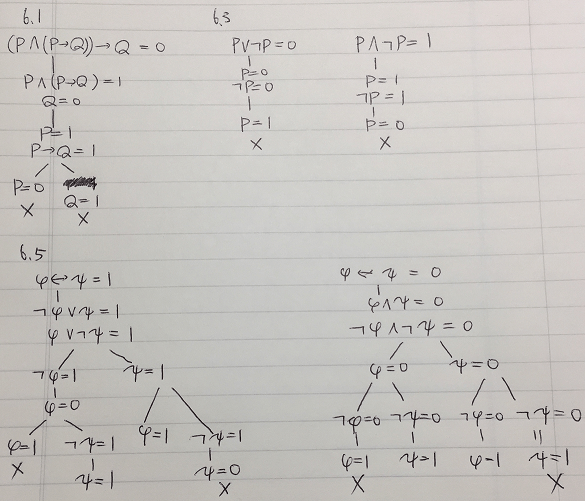 6.1
(P∧(P→Q))→Q = 0
P∧(P→Q) = 1
Q = 0
P = 1
P→Q = 1
P=0
X
Q=1
X
6.3
P∨¬P = 0
P=0
¬P=0
P=1
X
P∧¬P = 1
P=1
¬P=1
P=0
X
6.5
φ↔ψ = 1
¬φ∨ψ = 1
φ∨¬ψ = 1
¬φ=1 ψ=1
φ=0
φ=1 ¬ψ=1 φ=1 ¬ψ=1
X ψ=1 ψ=0
X
φ↔ψ = 0
φ∧ψ = 0
¬φ∧¬ψ = 0
φ=0 ψ=0
¬φ=0 ¬ψ=0 ¬φ=0 ¬ψ=0
φ=1 ψ=1 φ=1 ψ=1
X X